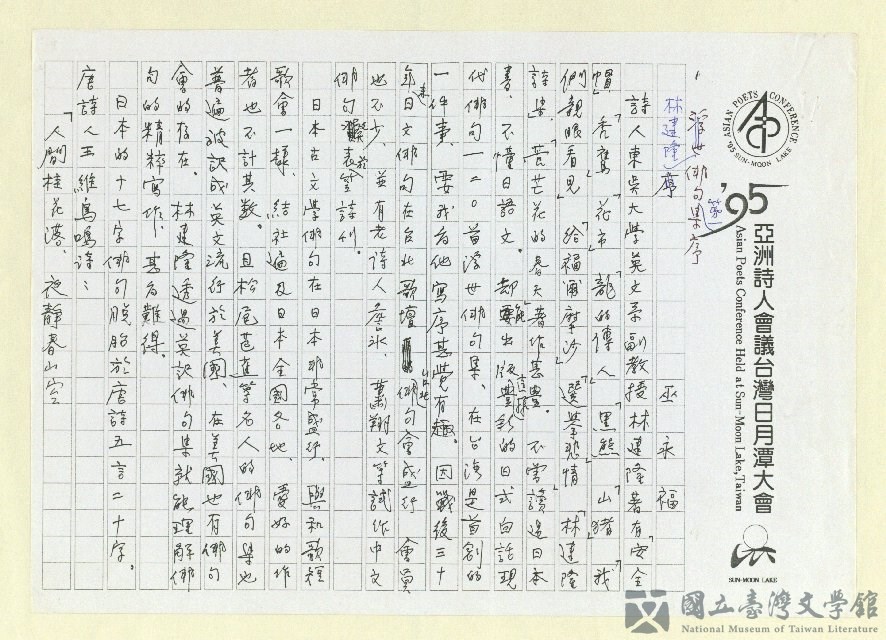 林建隆序
浮世俳句集序
第一
巫永福
詩人東吳大學英文系副教授林建隆著有「安全
帽」「禿鷹」「花市」「龍的傳人」「黑熊」「山豬」「我
們親眼看見」「給福爾摩沙」「選舉悲情」「林建隆
詩集」「芒花的春天」著作甚豐。不當讀過日本
書、不懂日語文。却能出版這樣豐彩的日式白話現
代俳句一二〇首浮世俳句集、在台灣是首創的
一件事、要我為他寫序甚覺有趣。因戰後三十
年來日文俳句在台北歌壇俳句會盛行 會員
也不少、並有老詩人詹冰、蕭翔文等試作中文
俳句發表於笠詩刊。
日本古文學俳句在日本非常盛行、與和歌短
歌會一樣、結社遍及日本全國各地、愛好的作
者也不計其數。且松尾芭蕉等名人的俳句集也
普遍被訳成英文流行於美國、在美國也有俳句
會的存在。林建隆透過英訳俳句集就能理解俳
句的精粹寫作、甚為難得。
日本的十七字俳句脫胎於唐詩五言二十字。
唐詩人王維鳥鳴詩：
「人間桂花落、夜靜春山空
ASIAN POETS CONFERENCE
'95 SUN-MOON LAKE
'95
亞洲詩人會議台灣日月潭大會
Asian Poets Conference Held at Sun-Moon Lake, Taiwan
SUN-MOON LAKE
國立臺灣文學館
National Museum of Taiwan Literature